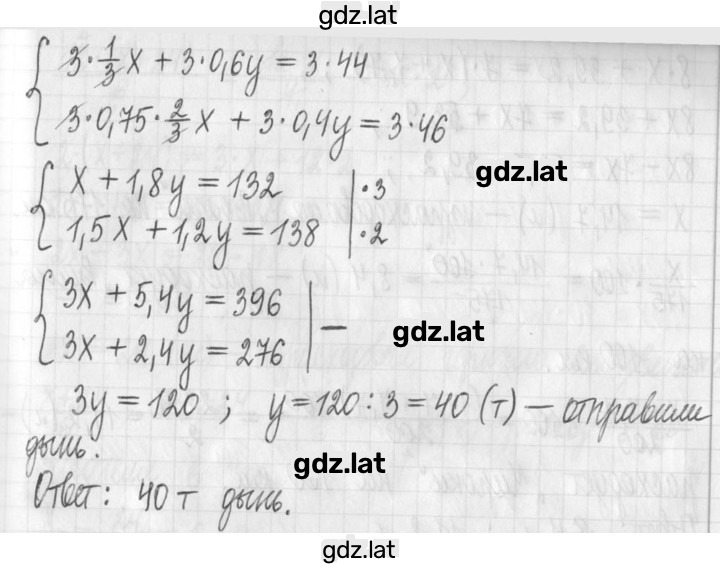 gdz.lat
3·1/3x + 3·0,6y = 3·44
3·0,75·2/3x + 3·0,4y = 3·46
gdz.lat
x + 1,8y = 132 | ·3
1,5x + 1,2y = 138 | ·2
3x + 5,4y = 396
3x + 2,4y = 276 | −
gdz.lat
3y = 120 ; y = 120 : 3 = 40 (т) — отправили
дынь.
gdz.lat
Ответ: 40 т дынь.
gdz.lat